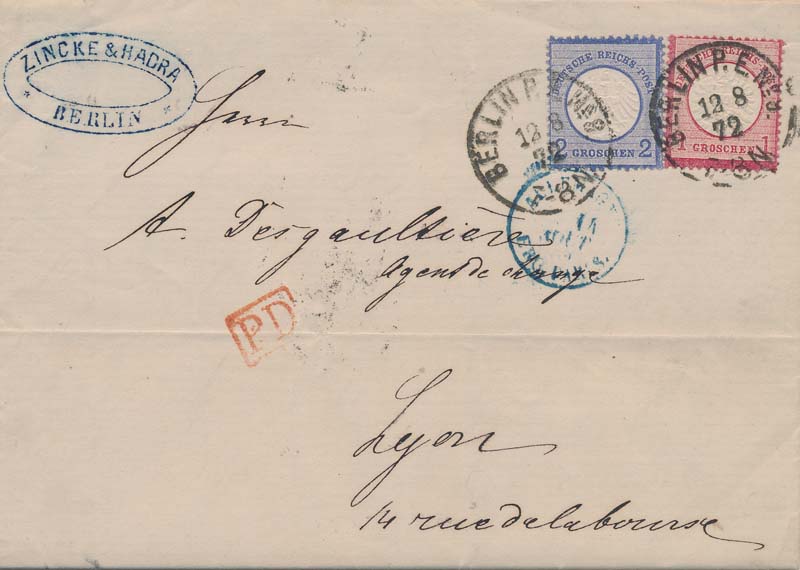 ZINCKE & HADRA
* BERLIN *
DEUTSCHE REICHS-POST
2 GROSCHEN 2
1 GROSCHEN
BERLIN P.
12 8
72
7-8 N
BERLIN P. E. No 9.
12 8
72
7-8 N
Herrn
A. Desgaultière
Agent de change
14
PD
Lyon
14 rue de la bourse